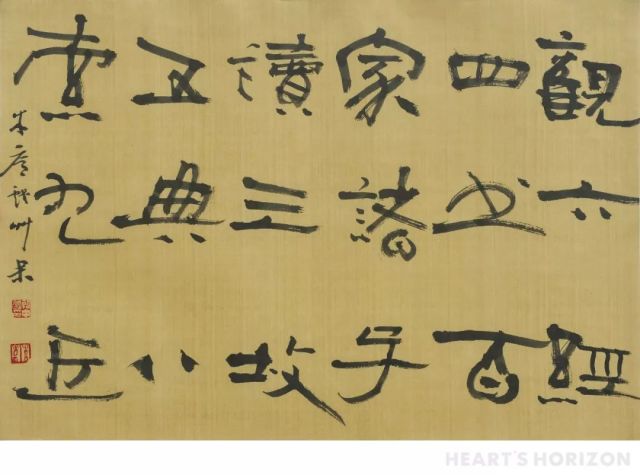 觀六經
四书百
家諸子
讀三坟
五典八
索九丘
HEART'S HORIZON